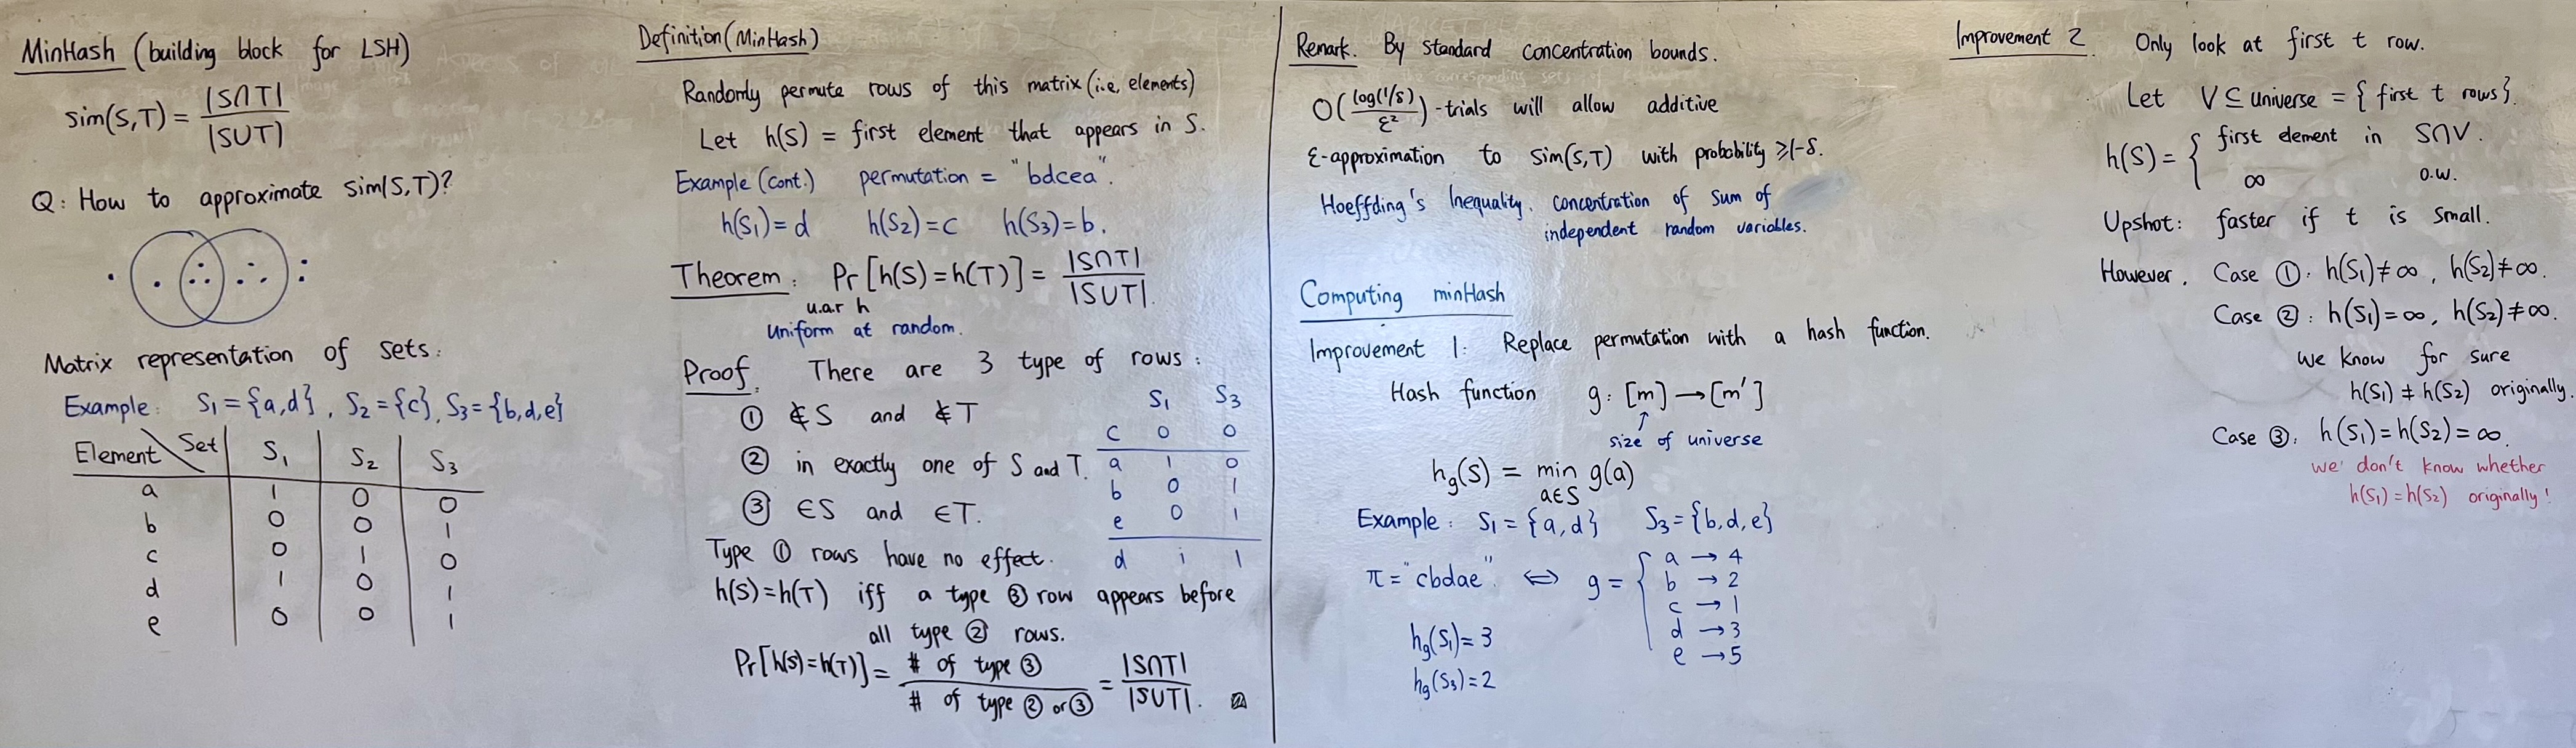 MinHash (building block for LSH)
sim(S,T) = |S∩T| / |S∪T|
Q: How to approximate sim(S,T)?
Matrix representation of sets:
Example: S₁={a,d}, S₂={c}, S₃={b,d,e}
Element \ Set S₁ S₂ S₃
a 1 0 0
b 0 0 1
c 0 1 0
d 1 0 1
e 0 0 1
Definition (MinHash)
Randomly permute rows of this matrix (i.e, elements)
Let h(S) = first element that appears in S.
Example (cont.) permutation = "bdcea".
h(S₁)=d h(S₂)=c h(S₃)=b.
Theorem: Pr[h(S)=h(T)] = |S∩T| / |S∪T|.
u.a.r h
uniform at random.
Proof. There are 3 type of rows:
① ∉S and ∉T
② in exactly one of S and T.
③ ∈S and ∈T.
S₁ S₃
c 0 0
a 1 0
b 0 1
e 0 1
d 1 1
Type ① rows have no effect.
h(S)=h(T) iff a type ③ row appears before
all type ② rows.
Pr[h(S)=h(T)] = # of type ③ / # of type ② or ③ = |S∩T| / |S∪T|.
Remark. By standard concentration bounds.
O(log(1/δ) / ε²)-trials will allow additive
ε-approximation to sim(S,T) with probability ≥1-δ.
Hoeffding's Inequality. concentration of sum of
independent random variables.
Computing minHash
Improvement 1: Replace permutation with a hash function.
Hash function g: [m] → [m']
↑
size of universe
h_g(S) = min_{a∈S} g(a)
Example: S₁={a,d} S₃={b,d,e}
π="cbdae" ⇔ g = {
a → 4
b → 2
c → 1
d → 3
e → 5
h_g(S₁)=3
h_g(S₃)=2
Improvement 2 Only look at first t row.
Let V ⊆ universe = {first t rows}.
h(S) = { first element in S∩V.
∞ o.w.
Upshot: faster if t is small.
However, Case ①: h(S₁)≠∞, h(S₂)≠∞.
Case ②: h(S₁)=∞, h(S₂)≠∞.
we know for sure
h(S₁)≠h(S₂) originally.
Case ③: h(S₁)=h(S₂)=∞.
we don't know whether
h(S₁)=h(S₂) originally!